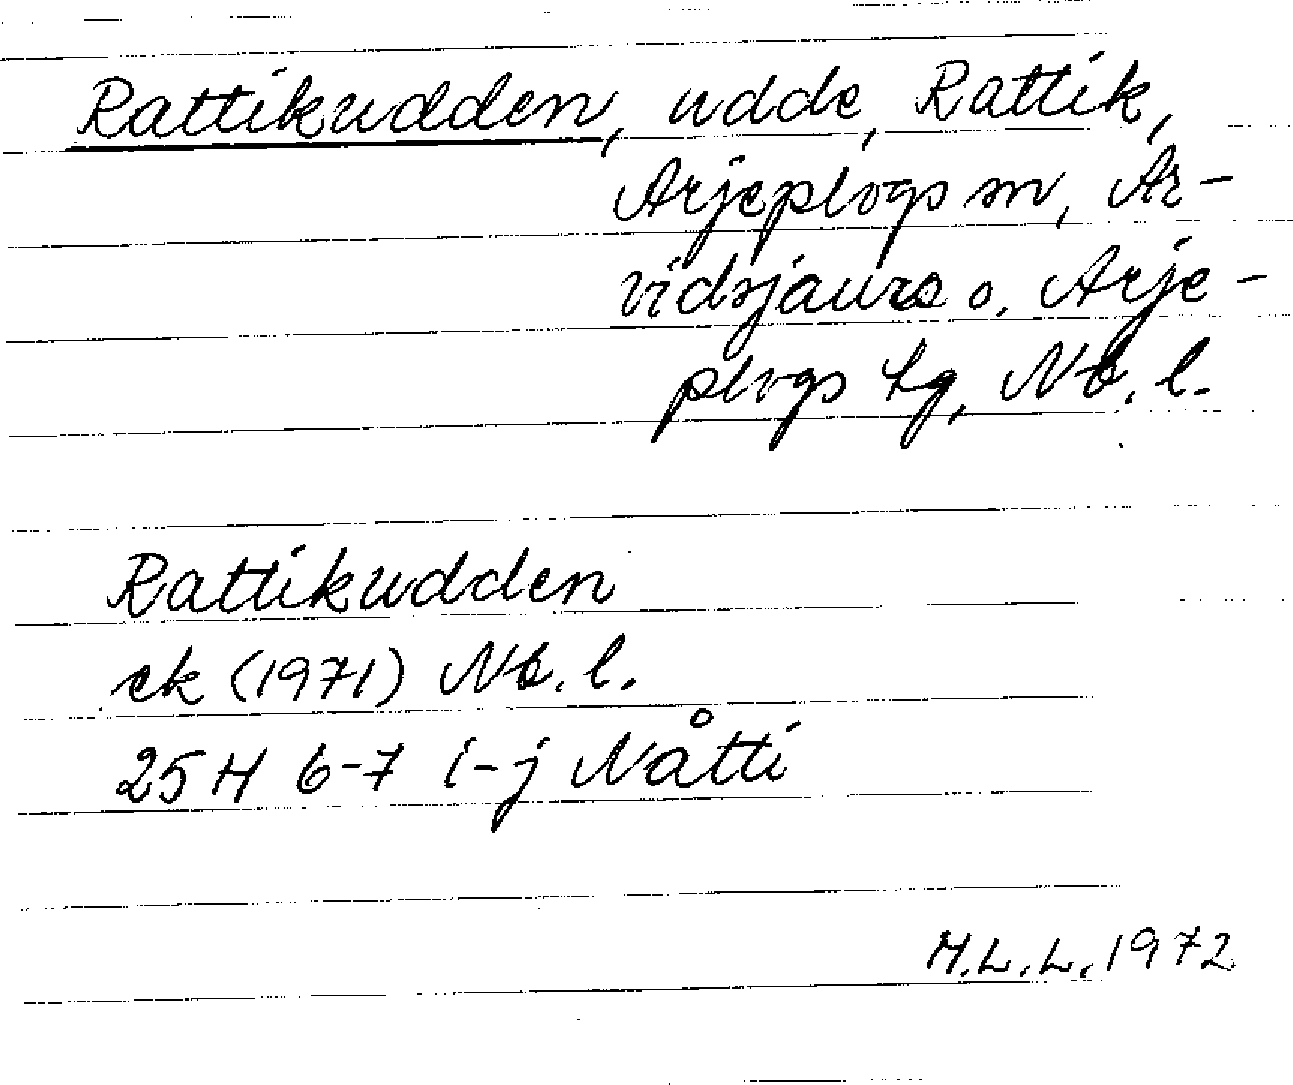 Rattikudden, udde, Rattik,
Arjeplogs sn, Ar-
vidsjaurs o. Arje-
plogs tg, Nb. l.
Rattikudden
ek (1971) Nb. l.
25H 6-7 i-j Nåtti
M.L.L. 1972